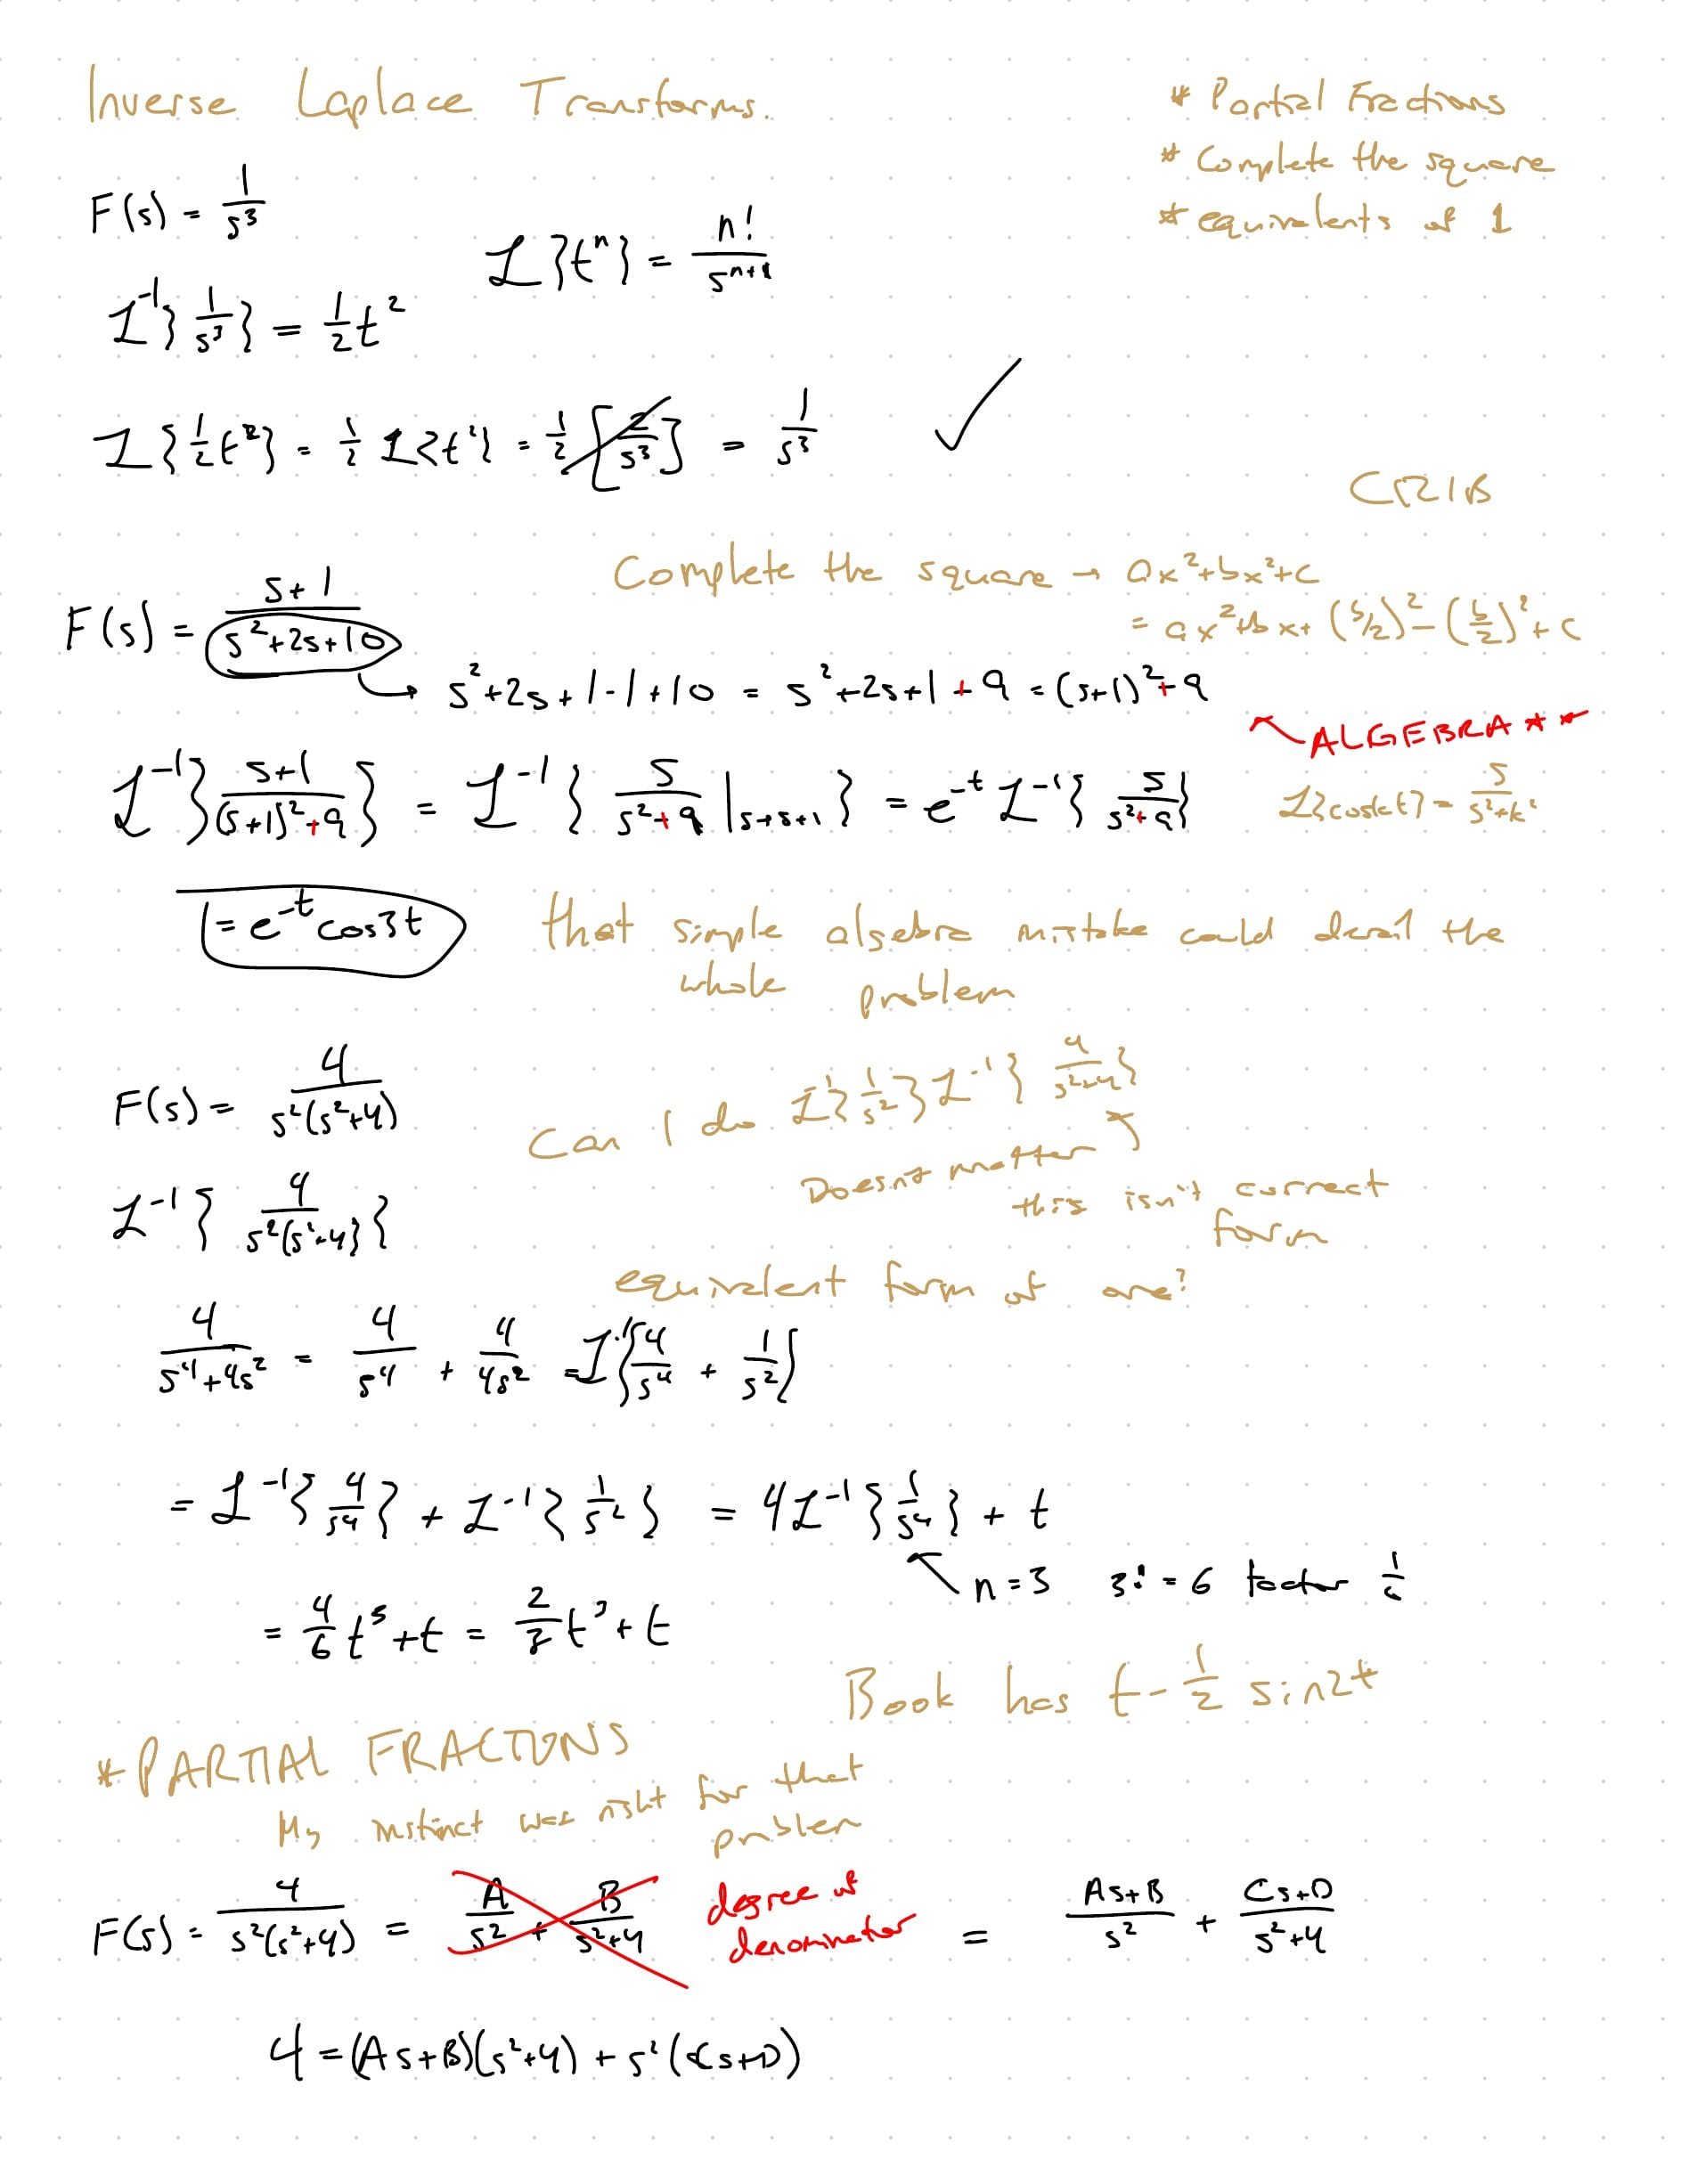 Inverse Laplace Transforms.
* Partial Fractions
* Complete the square
* equivalents of 1
F(s) = 1/s^3
L{t^n} = n!/s^(n+1)
L^-1{1/s^3} = 1/2 t^2
L{1/2 t^2} = 1/2 L{t^2} = 1/2 [2/s^3] = 1/s^3 ✓
CRIB
Complete the square → ax^2+bx^2+c
= ax^2+bx+(b/2)^2-(b/2)^2+c
F(s) = (s+1)/(s^2+2s+10)
s^2+2s+1-1+10 = s^2+2s+1+9 = (s+1)^2+9
ALGEBRA **
L^-1{(s+1)/((s+1)^2+9)} = L^-1{s/(s^2+9) |s→s+1} = e^-t L^-1{s/(s^2+9)}
L{cos kt} = s/(s^2+k^2)
= e^-t cos3t
that simple algebra mistake could derail the
whole problem
F(s) = 4/(s^2(s^2+4))
Can I do L^-1{1/s^2} L^-1{4/(s^2+4)}
Doesn't matter
this isn't correct
form
L^-1{4/(s^2(s^2+4))}
equivalent form of one?
4/(s^4+4s^2) = 4/s^4 + 4/4s^2 = L^-1{4/s^4 + 1/s^2}
= L^-1{4/s^4} + L^-1{1/s^2} = 4L^-1{1/s^4} + t
n=3 3!=6 factor 1/6
= 4/6 t^3 + t = 2/3 t^3 + t
Book has t - 1/2 sin2t
* PARTIAL FRACTIONS
My instinct was right for that
problem
F(s) = 4/(s^2(s^2+4)) = A/s^2 + B/(s^2+4) degree of denominator = (As+B)/s^2 + (Cs+D)/(s^2+4)
4 = (As+B)(s^2+4) + s^2(Cs+D)